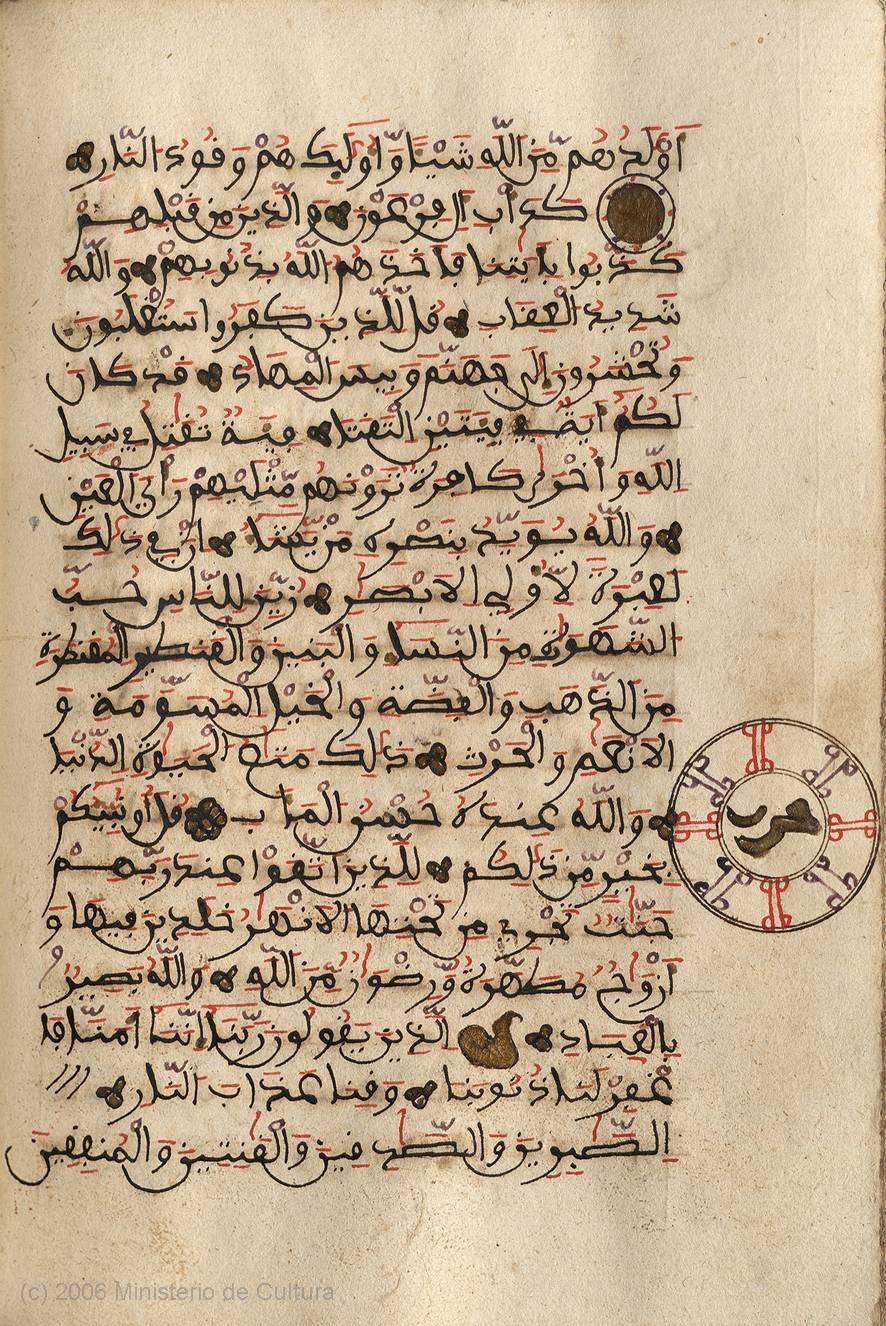 أولدهم من الله شيئا وأوليك هم وقود النار
كدأب ال فرعون والذين من قبلهم
كذبوا بايتنا فاخذهم الله بذنوبهم والله
شديد العقاب قل للذين كفروا ستغلبون
وتحشرون الى جهنم وبيس المهاد قد كان
لكم اية في فيتين التقتا فية تقتل في سبيل
الله وأخرى كافرة ترونهم مثليهم رأي العين
والله يويد بنصره من يشا ان في ذلك
لعبرة لاولي الابصر زين للناس حب
الشهوت من النسا والبنين والقنطير المقنطرة
من الذهب والفضة والخيل المسومة و
الانعم والحرث ذلك متع الحيوة الدنيا
والله عنده حسن الماب قل اونبيكم
بخير من ذلكم للذين اتقوا عند ربهم
جنت تجري من تحتها الانهر خلدين فيها و
أزوج مطهرة ورضون من الله والله بصير
بالعباد الذين يقولون ربنا اننا امنا فا
غفر لنا ذنوبنا وقنا عذاب النار
الصبرين والصدقين والقنتين والمنفقين
حزب
(c) 2006 Ministerio de Cultura